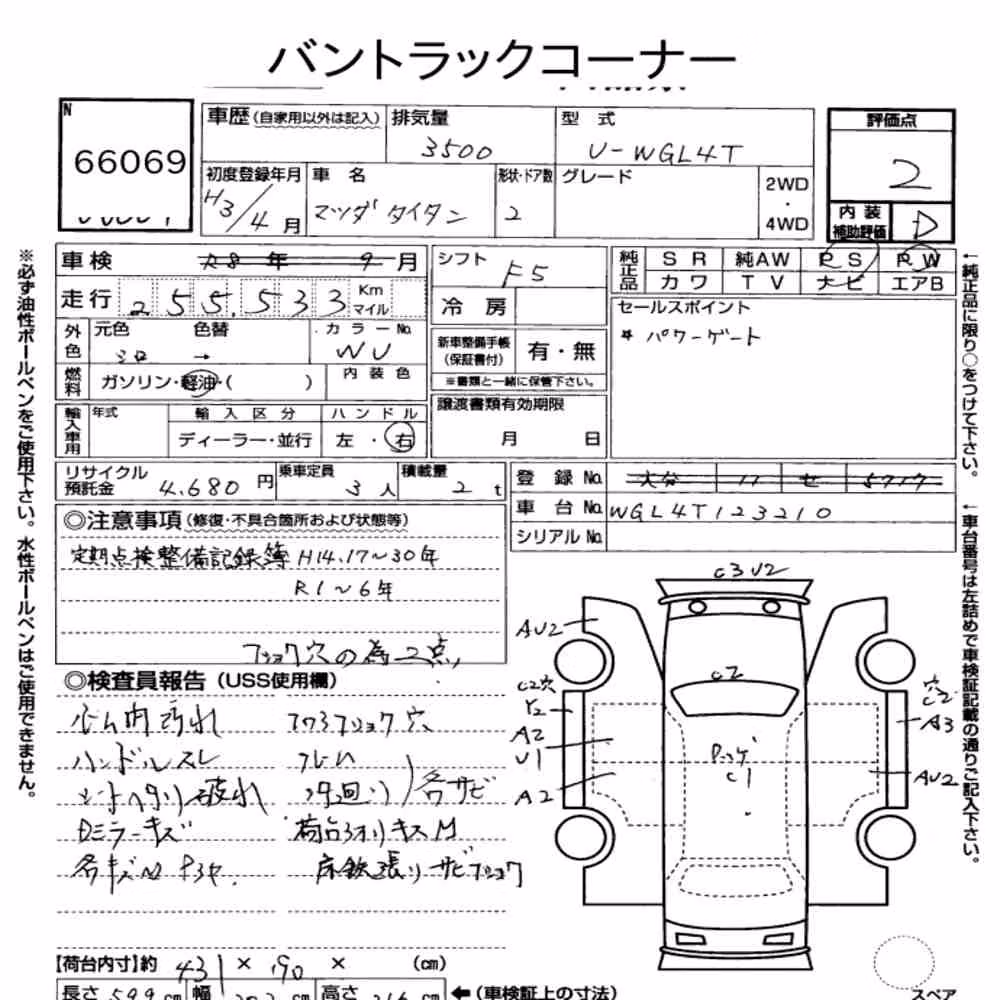 バントラックコーナー
N
66069
車歴(自家用以外は記入)
排気量
3500
型 式
U-WGL4T
評価点
2
内装補助評価
D
初度登録年月
H3/4月
車 名
マツダ タイタン
形状・ドア数
2
グレード
2WD
・
4WD
車検 R8年 9月
走行 255,533 Km マイル
シフト
F5
冷 房
純正品
SR 純AW PS PW
カワ TV ナビ エアB
外色
元色 色替
シロ →
カラーNo.
WU
燃料
ガソリン・軽油・( )
内装色
新車整備手帳
(保証書付)
有・無
※書類と一緒に保管下さい。
セールスポイント
* パワーゲート
輸入車用
年式
輸入区分
ディーラー・並行
ハンドル
左・右
譲渡書類有効期限
月 日
リサイクル預託金
4,680円
乗車定員
3人
積載量
2t
登録No. 大分 11 せ 5717
車台No. WGL4T123210
シリアルNo.
◎注意事項(修復・不具合箇所および状態等)
定期点検整備記録簿 H14.17～30年
R1～6年
フショク穴の為2点
◎検査員報告(USS使用欄)
ハンドルスレ
シートヘタリ破れ
Dミラーキズ
フレーム
各サビ
床鉄張りサビフショク
C3 U2
AU2
C2穴
Y2
A2
U1
A2
C2
ルーフ
C1
穴
C2
A3
AU2
【荷台内寸】約 431 × 190 × (cm)
長さ 599 cm 幅 cm 高さ 216 cm ←(車検証上の寸法)
スペア
※必ず油性ボールペンをご使用下さい。水性ボールペンはご使用できません。
←純正品に限り○をつけて下さい。
←車台番号は左詰めで車検証記載の通りご記入下さい。